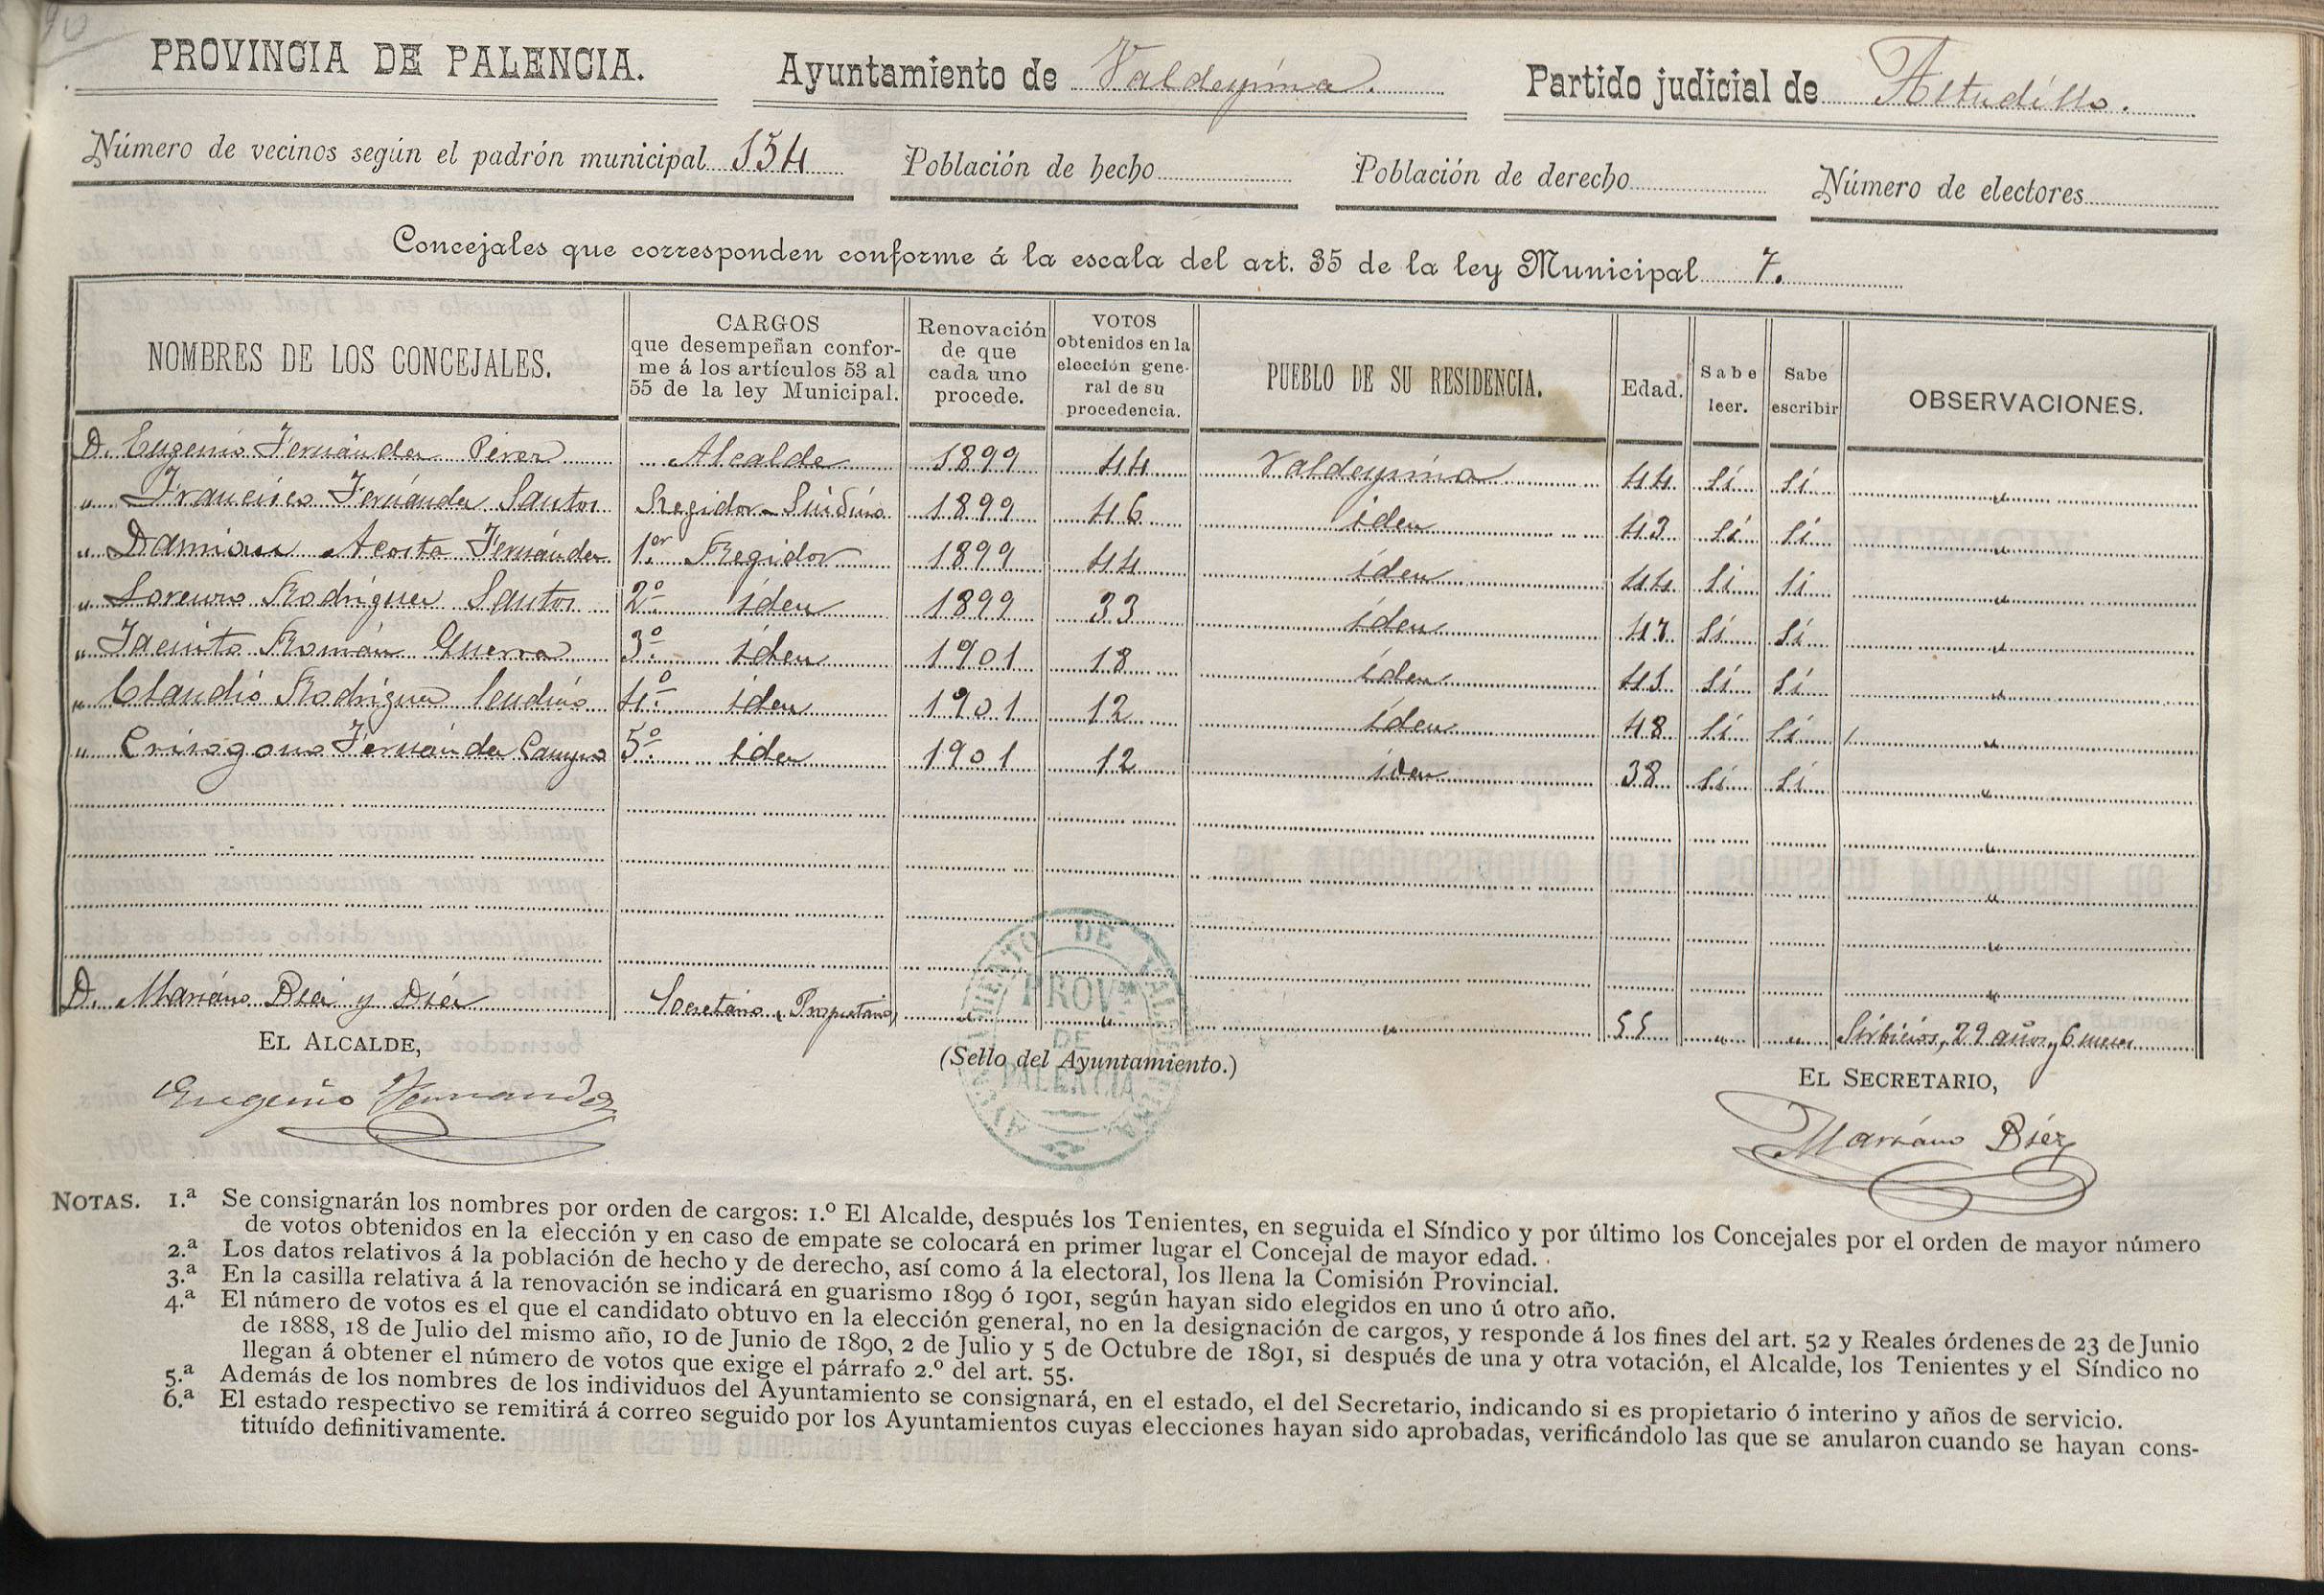 90
PROVINCIA DE PALENCIA. Ayuntamiento de Valdespina. Partido judicial de Astudillo.
Número de vecinos según el padrón municipal 154 Población de hecho Población de derecho Número de electores
Concejales que corresponden conforme á la escala del art. 35 de la ley Municipal 7.
NOMBRES DE LOS CONCEJALES. CARGOS que desempeñan conforme á los artículos 53 al 55 de la ley Municipal. Renovación de que cada uno procede. VOTOS obtenidos en la elección general de su procedencia. PUEBLO DE SU RESIDENCIA. Edad. Sabe leer. Sabe escribir OBSERVACIONES.
D. Eugenio Fernández Pérez Alcalde 1899 44 Valdespina 44 Si Si "
" Francisco Fernández Santos Regidor-Síndico 1899 46 idem 43 Si Si "
" Damian Acosta Fernández 1er. Regidor 1899 44 idem 44 Si Si "
" Lorenzo Rodríguez Santos 2º. idem 1899 33 idem 47 Si Si "
" Jacinto Román Guerra 3º. idem 1901 18 idem 41 Si Si "
" Claudio Rodríguez 4º. idem 1901 12 idem 48 Si Si "
" Crisogono Fernández Campo 5º. idem 1901 12 idem 38 Si Si "
"
"
"
"
D. Mariano Diez y Diez Secretario, Propietario " " " 55 " " Serbicios, 29 años y 6 meses
EL ALCALDE, (Sello del Ayuntamiento.) EL SECRETARIO,
Eugenio Fernandez Mariano Diez
AYUNTAMIENTO DE VALDESPINA
PROVª DE PALENCIA
NOTAS. 1.ª Se consignarán los nombres por orden de cargos: 1.º El Alcalde, después los Tenientes, en seguida el Síndico y por último los Concejales por el orden de mayor número
de votos obtenidos en la elección y en caso de empate se colocará en primer lugar el Concejal de mayor edad.
2.ª Los datos relativos á la población de hecho y de derecho, así como á la electoral, los llena la Comisión Provincial.
3.ª En la casilla relativa á la renovación se indicará en guarismo 1899 ó 1901, según hayan sido elegidos en uno ú otro año.
4.ª El número de votos es el que el candidato obtuvo en la elección general, no en la designación de cargos, y responde á los fines del art. 52 y Reales órdenes de 23 de Junio
de 1888, 18 de Julio del mismo año, 10 de Junio de 1890, 2 de Julio y 5 de Octubre de 1891, si después de una y otra votación, el Alcalde, los Tenientes y el Síndico no
llegan á obtener el número de votos que exige el párrafo 2.º del art. 55.
5.ª Además de los nombres de los individuos del Ayuntamiento se consignará, en el estado, el del Secretario, indicando si es propietario ó interino y años de servicio.
6.ª El estado respectivo se remitirá á correo seguido por los Ayuntamientos cuyas elecciones hayan sido aprobadas, verificándolo las que se anularon cuando se hayan cons-
tituído definitivamente.